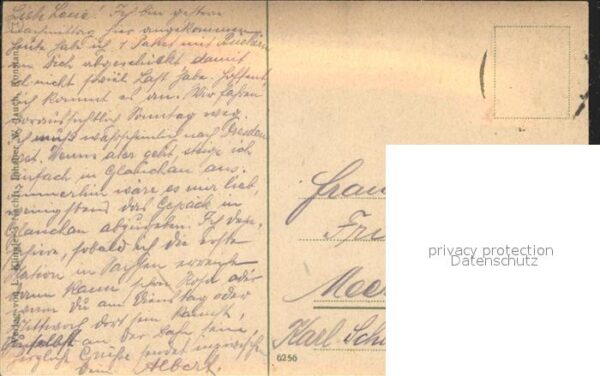 Liebe Luise! Ich bin gestern
Nachmittag hier angekommen.
Heute habe ich 1 Paket mit Büchern
an Dich abgeschickt damit
nicht soviel Last habe. Hoffent-
lich kommt es an. Wir fahren
voraussichtlich Sonntag weg.
Ich muß wahrscheinlich nach Dresden
Wenn es aber geht, steige ich
einfach in Glauchau aus.
Immerhin wäre es mir lieb,
wenigstens das Gepäck in
Glauchau abzugeben. Ich depe-
schiere, sobald ich die erste
Station in Sachsen erreicht
dann kann schon Rosa oder
wenn Du am Dienstag oder
Mittwoch dort sein kannst,
selbst an der Bahn sein.
Herzliche Grüße sendet inzwischen
Dein Albert.
Frau
Mee
Karl Sch
6256
privacy protection
Datenschutz